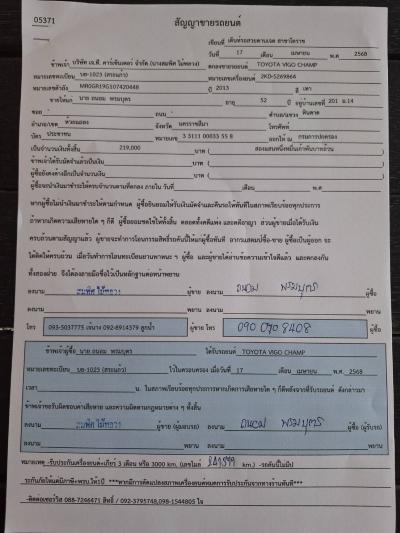 05371
สัญญาขายรถยนต์
เขียนที่ เต็นท์รถสวยตามเจต สาขาโคราช
วันที่ 17 เดือน เมษายน พ.ศ 2568
ข้าพเจ้า บริษัท เจ.ที. คาร์เซ็นเตอร์ จำกัด (นางสมพิศ ไม้หลวง) ตกลงขายรถยนต์ TOYOTA VIGO CHAMP
หมายเลขทะเบียน บธ-1023 (สระแก้ว) หมายเลขเครื่องยนต์ 2KD-S269864
หมายเลขตัวรถ MR0GR19G107420448 ปี 2013 สี เทา
ขายให้แก่ นาย ถนอม พรมบุตร อายุ 52 ปี อยู่บ้านเลขที่ 201 ม.14
ซอย ถนน ตำบล/แขวง หินดาด
อำเภอ/เขต ห้วยแถลง จังหวัด นครราชสีมา โทรศัพท์
บัตร ประชาชน หมายเลข 3 3111 00033 55 8 ออกให้ ณ กรมการปกครอง
เป็นจำนวนเงินทั้งสิ้น 219,000 บาท ( สองแสนหนึ่งหมื่นเก้าพันบาทถ้วน )
ข้าพเจ้าได้รับมัดจำแล้วเป็นเงิน บาท ( )
ผู้ซื้อยังคงค้างอีกเป็นจำนวนเงิน บาท ( )
ผู้ซื้อจะนำเงินมาชำระให้ครบจำนวนตามที่ตกลง ภายใน วันที่ เดือน พ.ศ.
หากผู้ซื้อไม่นำเงินมาชำระให้ตามกำหนด ผู้ซื้อยินยอมให้ริบเงินมัดจำและคืนรถให้ทันทีในสภาพเรียบร้อยทุกประการ
ถ้าหากเกิดความเสียหายใด ๆ ก็ดี ผู้ซื้อยอมชดใช้ให้ทั้งสิ้น ตลอดทั้งคดีแพ่ง และคดีอาญา ส่วนผู้ขายเมื่อได้รับเงิน
ครบถ้วนตามสัญญาแล้ว ผู้ขายจะทำการโอนกรรมสิทธิ์รถคันนี้ให้แก่ผู้ซื้อทันที อากรแสตมป์ซื้อ-ขาย ผู้ซื้อเป็นผู้ออก จะ
ได้ผิดให้ครบถ้วน เมื่อวันทำการโอนทะเบียนยานพาหนะ ฯ ผู้ซื้อ และผู้ขายได้อ่านข้อความเข้าใจดีแล้ว และตกลงกัน
ทั้งสองฝ่าย จึงได้ลงลายมือชื่อไว้เป็นหลักฐานต่อหน้าพยาน
ลงนาม สมพิศ ไม้หลวง ผู้ขาย ลงนาม ถนอม พรมบุตร ผู้ซื้อ
ลงนาม พยาน ลงนาม ผู้ซื้อ
โทร 093-5037775 เจ้นาง 092-8914379 ลูกน้ำ ผู้ขาย โทร 090 090 8408 ผู้ซื้อ
ข้าพเจ้าผู้ซื้อ นาย ถนอม พรมบุตร ได้รับรถยนต์ TOYOTA VIGO CHAMP
หมายเลขทะเบียน บธ-1023 (สระแก้ว) ไว้ในครอบครอง เมื่อวันที่ 17 เดือน เมษายน พ.ศ. 2568
เวลา น. ในสภาพเรียบร้อยทุกประการหากเกิดการเสียหายใด ๆ ก็ดีหลังจากที่รับรถยนต์ ดังกล่าวมา
ข้าพเจ้าขอรับผิดชอบค่าเสียหาย และความผิดตามกฎหมายต่าง ๆ ทั้งสิ้น
ลงนาม สมพิศ ไม้หลวง ผู้ขาย (ผู้มอบรถ) ลงนาม ถนอม พรมบุตร ผู้ซื้อ (ผู้รับรถ)
ลงนาม พยาน ลงนาม พยาน
หมายเหตุ -รับประกันเครื่องยนต์+เกียร์ 3 เดือน หรือ 3000 km. (เลขไมล์ km.) -รถคันนี้ไม่มี
ระกันภัยให้แต่มีภาษี+พรบ.ให้1ปี ***หากมีการดัดแปลงสภาพเครื่องยนต์หมดการรับประกันจากทางร้านทันที***
-ติดต่อเซอร์วิส 088-7246471 สิทธิ์ / 092-3795748,098-1544805 ใจ